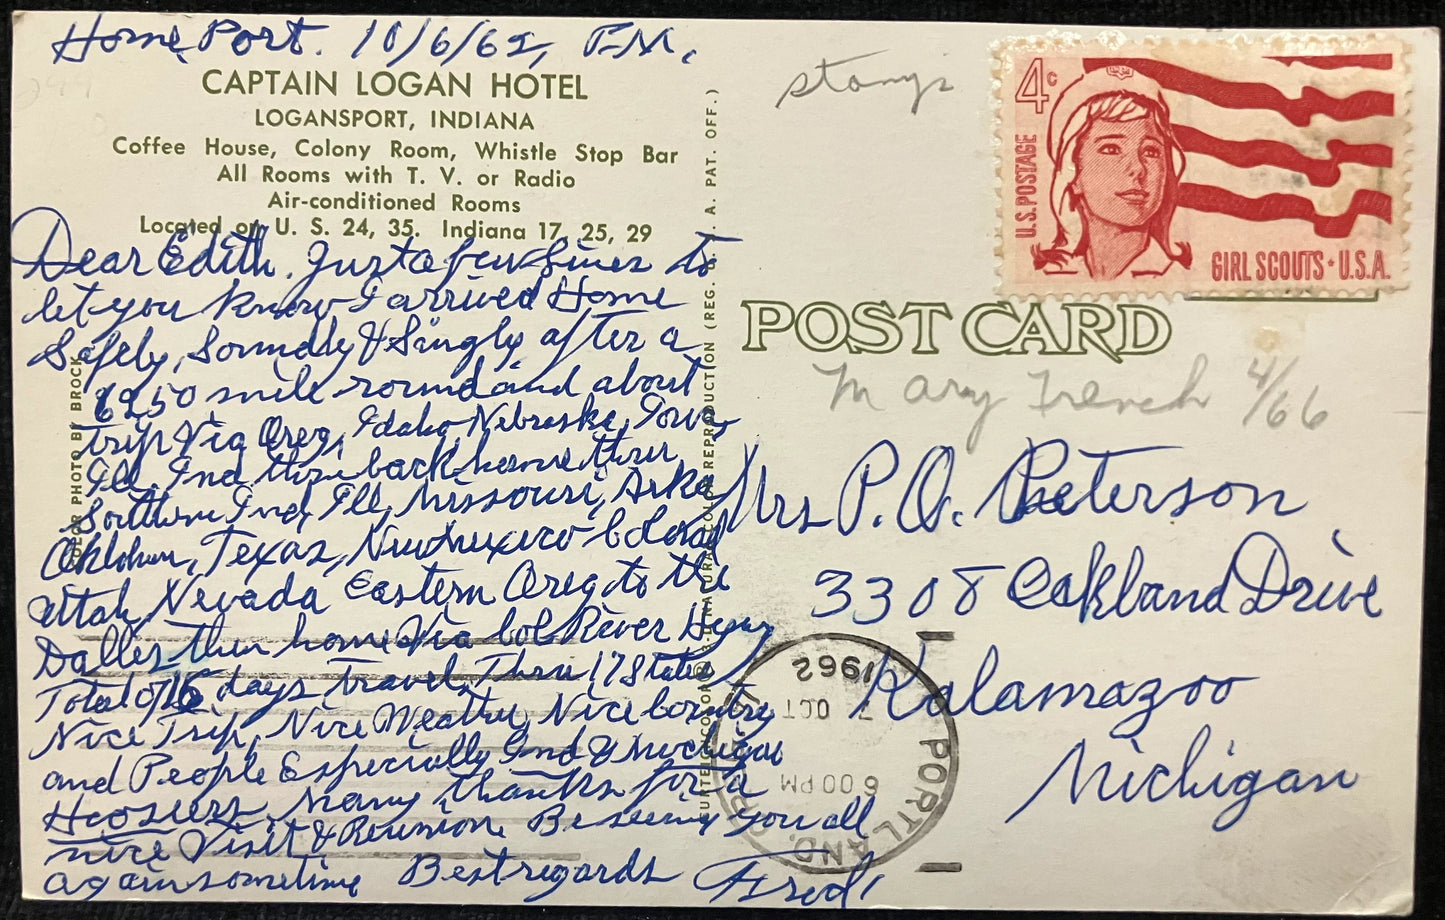 Home Port. 10/6/62, P.M.
CAPTAIN LOGAN HOTEL
LOGANSPORT, INDIANA
Coffee House, Colony Room, Whistle Stop Bar
All Rooms with T. V. or Radio
Air-conditioned Rooms
Located on U. S. 24, 35. Indiana 17, 25, 29
Dear Edith. Just a few lines to
let you know I arrived Home
Safely, Soundly & Singly after a
6250 mile round and about
trip Via Oreg, Idaho Nebraska, Iowa,
Ill, Ind then back home thru
Southern Ind, Ill, Missouri, Arka
Oklahom, Texas, New Mexico Colorad
Utah, Nevada Eastern Oreg to the
Dalles then home Via Col River Hgwy
Total of 16 days travel, Thru 17 States
Nice Trip, Nice Weather, Nice Country
and People Especially Ind & Michigan
Hoosiers. Many thanks for a
nice Visit & Reunion. Be seeing you all
again sometime Best regards Fred
COLOR PHOTO BY BROCK
NATURAL COLOR REPRODUCTION (REG. U. S. A. PAT. OFF.)
4c
U.S. POSTAGE
GIRL SCOUTS · U.S.A.
POST CARD
Mary French 4/66
Mrs P. O. Peterson
3308 Oakland Drive
Kalamazoo
Michigan
PORTLAND, OREG.
7 OCT
6:00 PM
1962